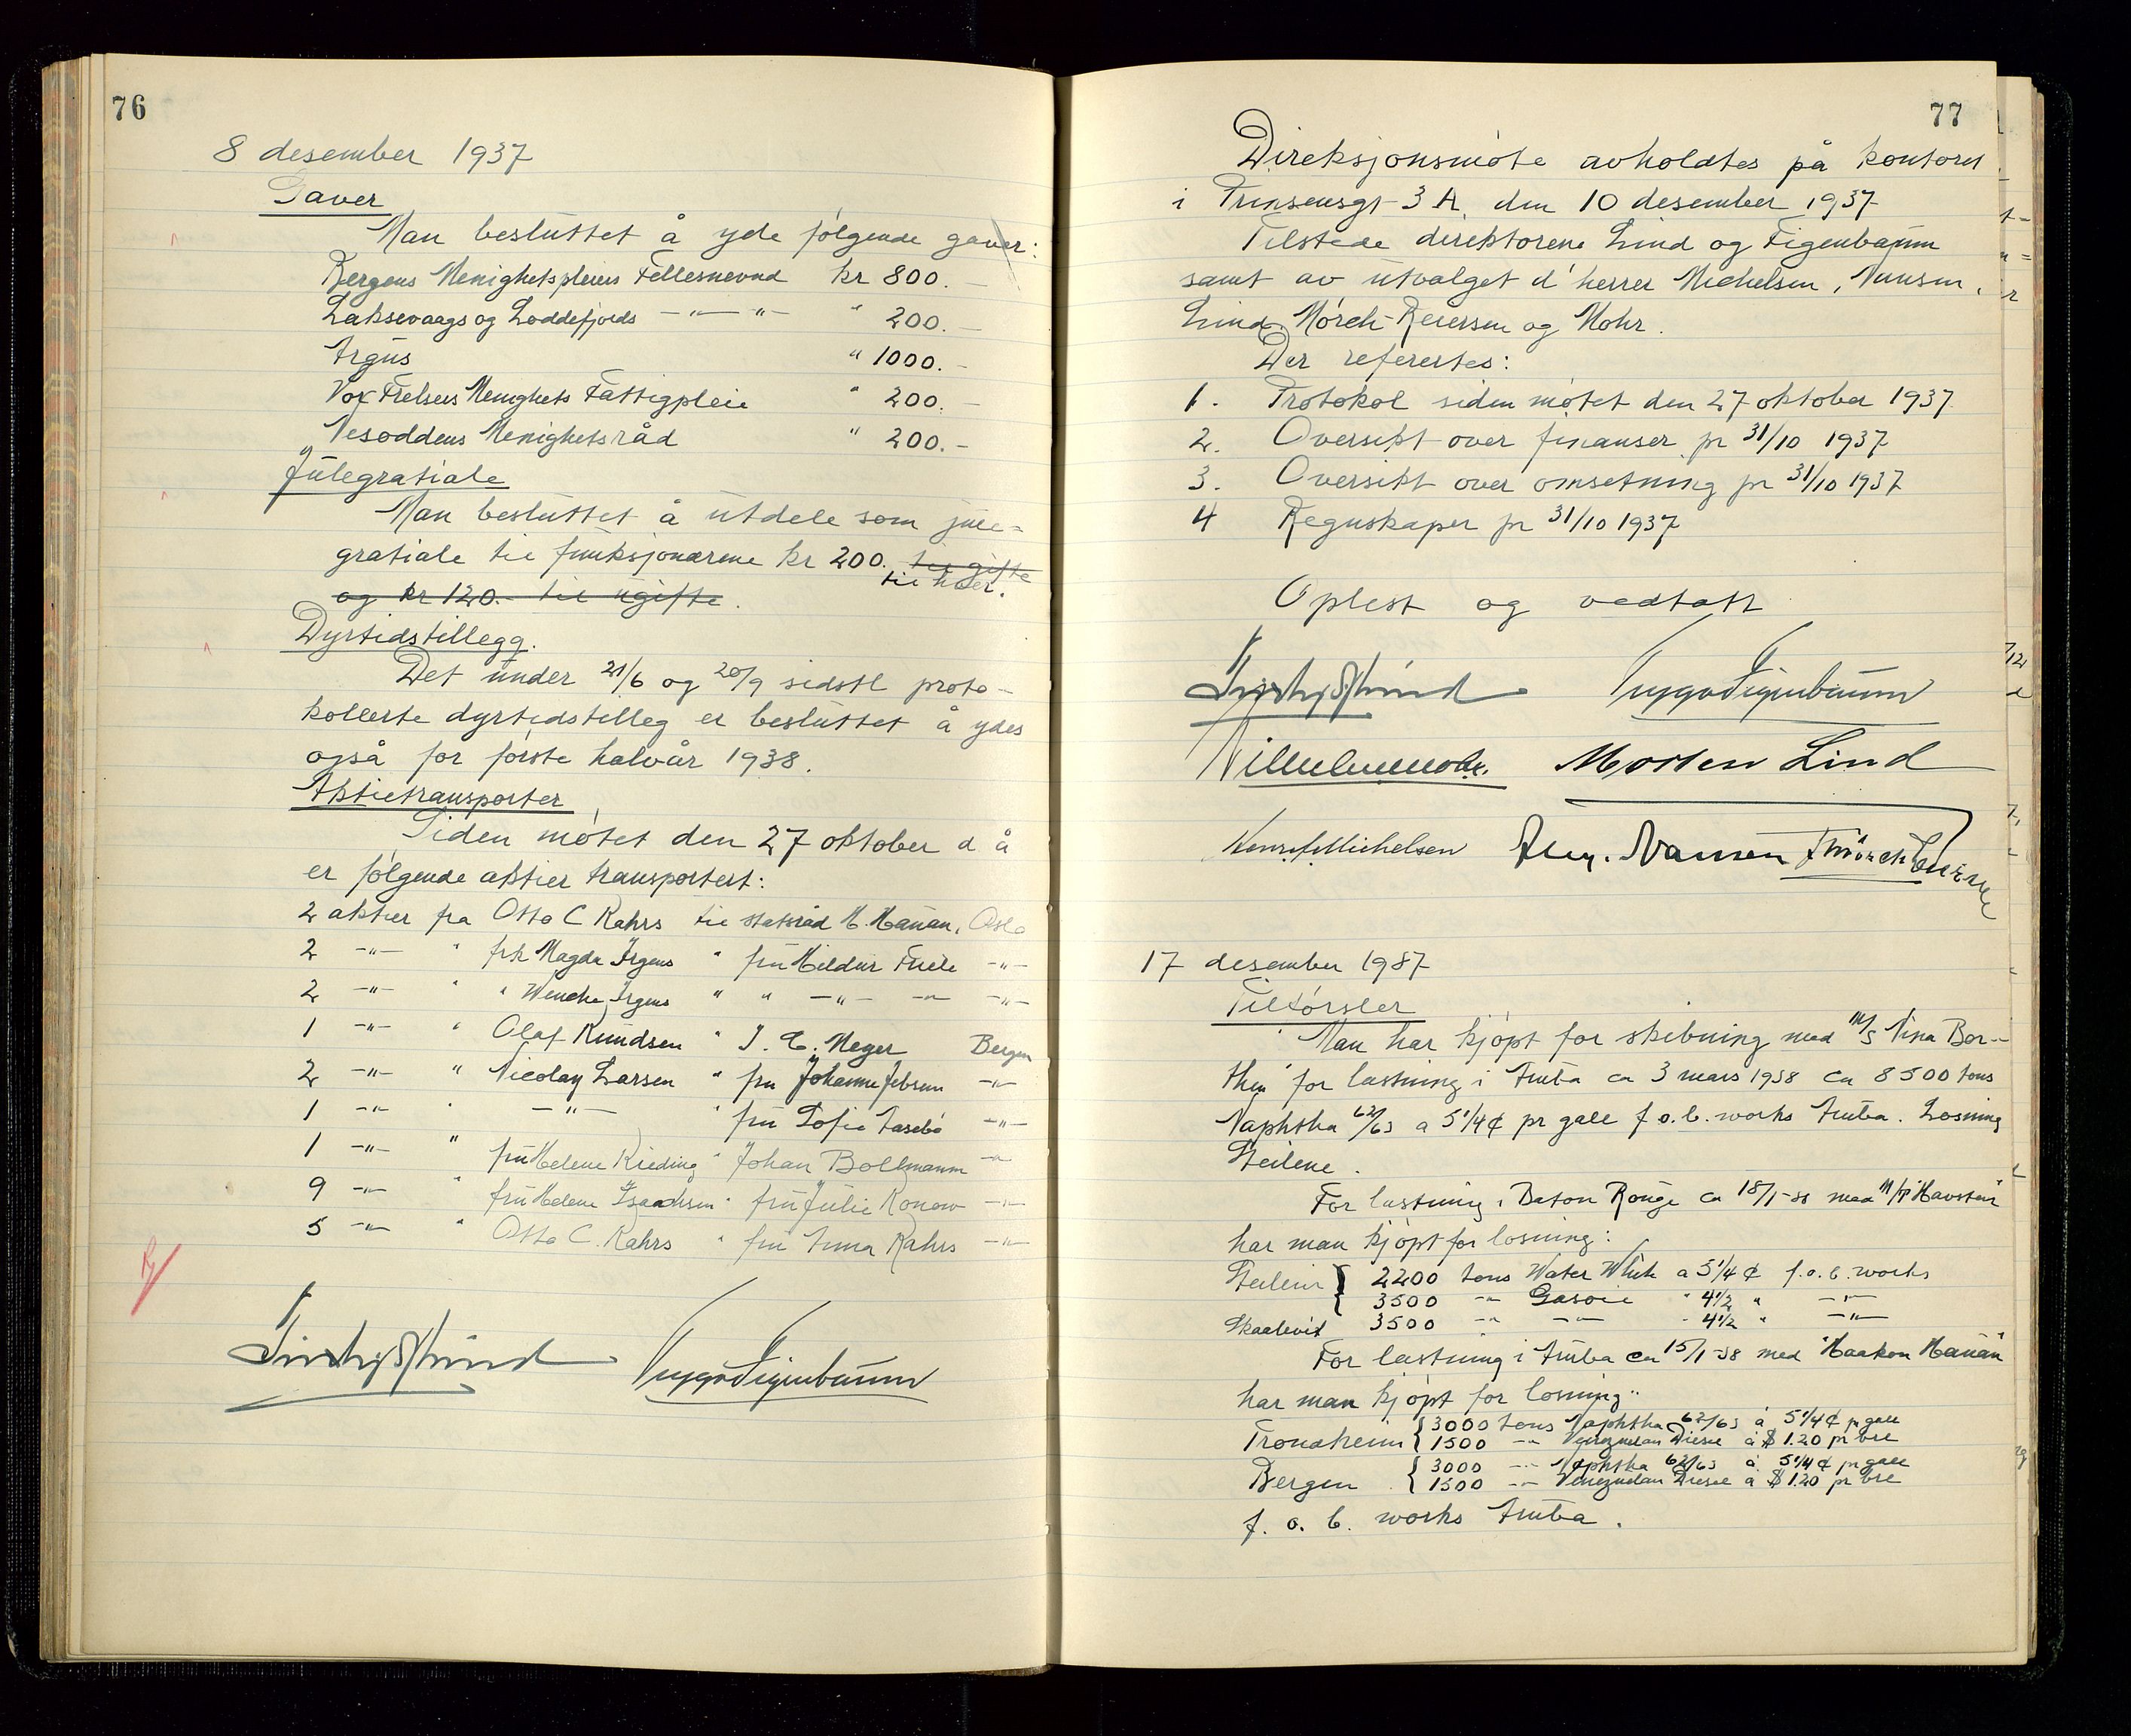 76
8 desember 1937
Gaver
Man besluttet å yde følgende gaver:
Bergens Menighetspleiers Fellesnevnd kr 800.–
Laksevaags og Loddefjords –"– "– " 200.–
Argus " 1000.–
Vor Frelsers Menighets Fattigpleie " 200.–
Nesoddens Menighetsråd " 200.–
Julegratiale
Man besluttet å utdele som jule=
gratiale til funksjonærene kr 200. til gifte
til hver.
og kr 120.– til ugifte.
Dyrtidstillegg.
Det under 21/6 og 20/9 sidstl proto-
kollerte dyrtidstillegg er besluttet å ydes
også for første halvår 1938.
Aktietransporter
Siden møtet den 27 oktober d å
er følgende aktier transportert:
2 aktier fra Otto C Kahrs til statsråd H. Hauan, Oslo
2 –"– " frk Magda Irgens " fru Hildur Friele –"–
2 –"– " " Wenche Irgens " " –"– –"– –"–
1 –"– " Olaf Knudsen " J. C. Meyer Bergen
2 –"– " Nicolay Larsen " fru Johanne Jebsen –"–
1 –"– " –"– " fru Sofie Aasebø –"–
1 –"– " fru Helene Rieding " Johan Bollmann –"–
9 –"– " fru Helene Isaachsen " fru Julie Konow –"–
5 –"– " Otto C. Kahrs " fru Anna Kahrs –"–
Trygve Figenbaum
77
Direksjonsmøte avholdtes på kontoret
i Prinsensgt 3 A, den 10 desember 1937
Tilstede direktørene Lind og Figenbaum
samt av utvalget d'herrer Michelsen, Nansen,
Lind, Mørch-Reiersen og Mohr.
Der refertes:
1. Protokol siden møtet den 27 oktober 1937
2. Oversikt over finanser pr 31/10 1937
3. Oversikt over omsetning pr 31/10 1937
4 Regnskaper pr 31/10 1937
Oplest og vedtatt
Trygve Figenbaum
Vilhelm Mohr. Morten Lind
Michelsen Alex. Nansen Mørch
17 desember 1937
Tilførsler
Man har kjøpt for skibning med M/S "Nina Bor-
then" for lastning i Aruba ca 3 mars 1938 ca 8500 tons
Naphtha 62/63 a 5 1/4 ¢ pr gall f.o.b. works Aruba. Losning
Steilene.
For lastning i Baton Rouge ca 18/1-38 med M/T "Havsten"
har man kjøpt for losning:
Steilene { 2200 tons Water White a 5 1/4 ¢ f.o.b. works
3500 –"– Gasoil " 4 1/2 " –"–
Skaalevik 3500 –"– –"– " 4 1/2 " –"–
For lastning i Aruba ca 15/1-38 med "Haakon Hauan"
har man kjøpt for losning:
Trondheim { 3000 tons Naphtha 62/63 à 5 1/4 ¢ pr gall
1500 –"– Venezuelan Diesel à $ 1.20 pr brl
Bergen { 3000 –"– Naphtha 62/63 à 5 1/4 ¢ pr gall
1500 –"– Venezuelan Diesel à $ 1.20 pr brl
f. o. b. works Aruba.